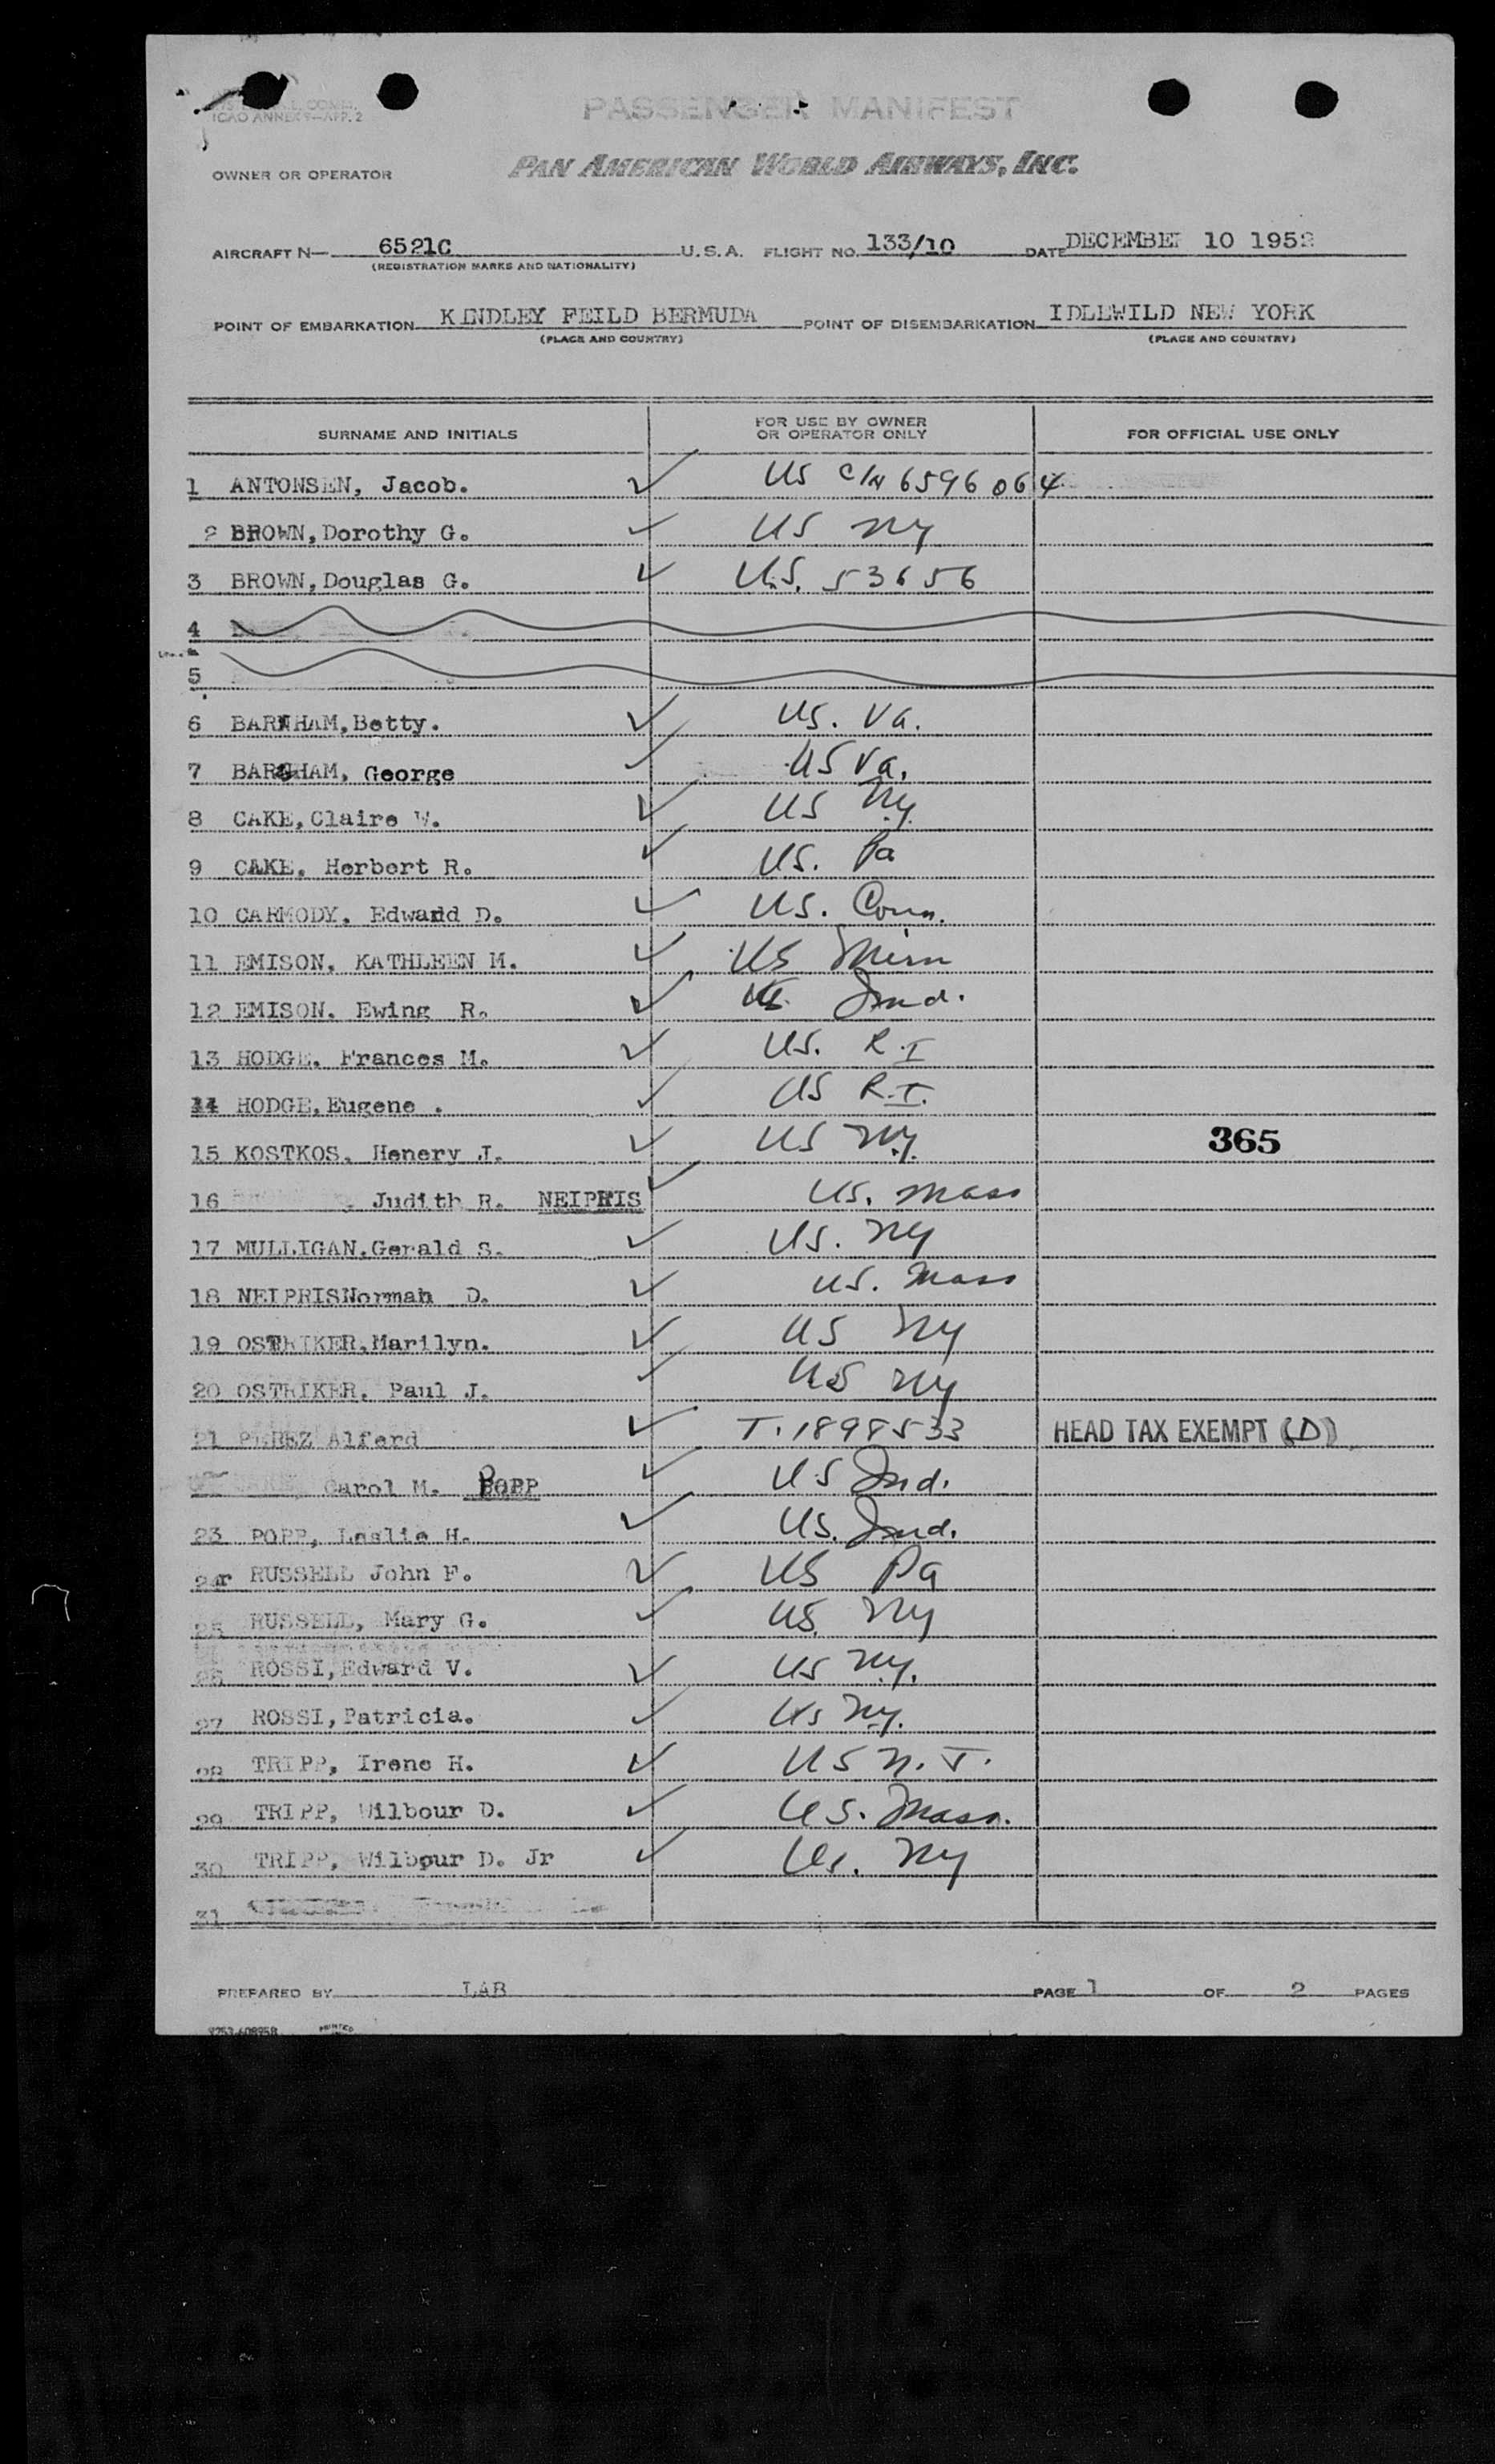 ICAO ANNEX 9—APP. 2
PASSENGER MANIFEST
PAN AMERICAN WORLD AIRWAYS, INC.
OWNER OR OPERATOR
AIRCRAFT N— 6521C U.S.A. FLIGHT NO. 133/10 DATE DECEMBER 10 1952
(REGISTRATION MARKS AND NATIONALITY)
POINT OF EMBARKATION KINDLEY FEILD BERMUDA POINT OF DISEMBARKATION IDLEWILD NEW YORK
(PLACE AND COUNTRY) (PLACE AND COUNTRY)
SURNAME AND INITIALS FOR USE BY OWNER OR OPERATOR ONLY FOR OFFICIAL USE ONLY
1 ANTONSEN, Jacob. ✓ US C/N 6596064
2 BROWN, Dorothy G. ✓ US NY
3 BROWN, Douglas G. ✓ U.S. 53656
4
5
6 BARNHAM, Betty. ✓ US. Va.
7 BARNHAM, George ✓ US Va.
8 CAKE, Claire W. ✓ US N.Y.
9 CAKE, Herbert R. ✓ US. Pa
10 CARMODY, Edward D. ✓ US. Conn.
11 EMISON, KATHLEEN M. ✓ US Minn
12 EMISON, Ewing R. ✓ US. Ind.
13 HODGE, Frances M. ✓ US. R.I
14 HODGE, Eugene . ✓ US R.I.
15 KOSTKOS, Henery J. ✓ US N.Y. 365
16 , Judith R. NEIPRIS ✓ US. Mass
17 MULLIGAN, Gerald S. ✓ US. NY
18 NEIPRIS Norman D. ✓ US. Mass
19 OSTRIKER, Marilyn. ✓ US NY
20 OSTRIKER, Paul J. ✓ US NY
21 PEREZ Alferd ✓ T.1898533 HEAD TAX EXEMPT (D)
Carol M. POPP ✓ US Ind.
23 POPP, Leslie H. ✓ US. Ind.
24 RUSSELL John F. ✓ US Pa
25 RUSSELL, Mary G. ✓ US. NY
26 ROSSI, Edward V. ✓ US N.Y.
27 ROSSI, Patricia. ✓ US N.Y.
28 TRIPP, Irene H. ✓ US N.J.
29 TRIPP, Wilbour D. ✓ US. Mass.
30 TRIPP, Wilbour D. Jr ✓ US. NY
31
PREPARED BY LAB PAGE 1 OF 2 PAGES
PRINTED